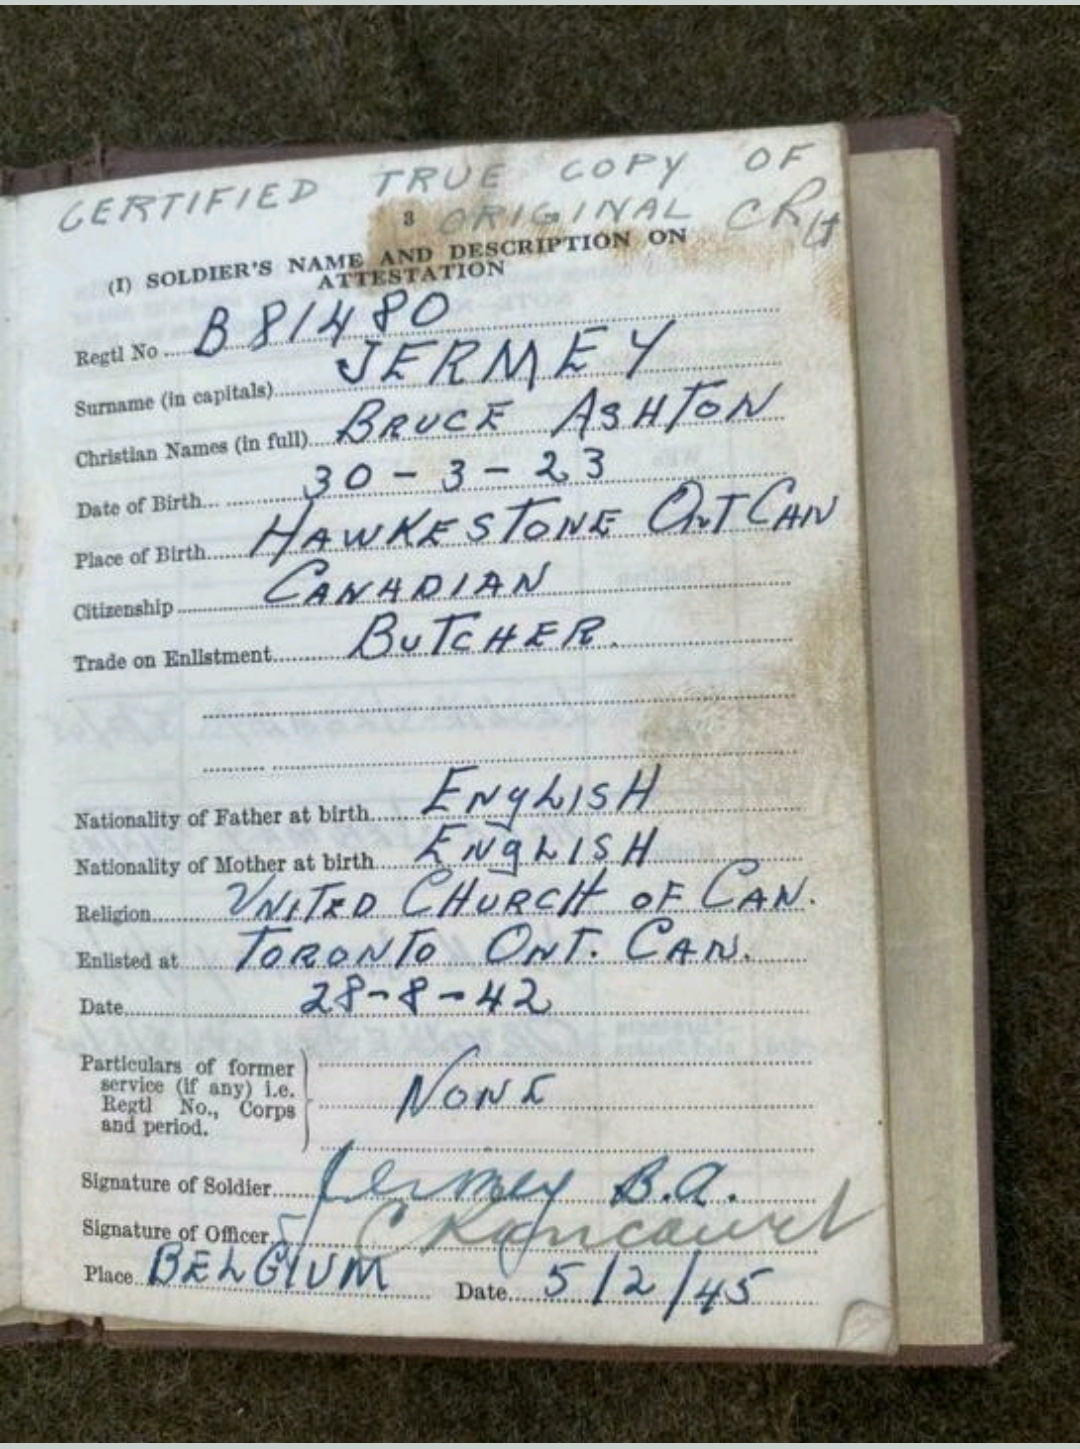 CERTIFIED TRUE COPY OF
3 ORIGINAL
(I) SOLDIER'S NAME AND DESCRIPTION ON
ATTESTATION
Regtl No B81480
Surname (in capitals) JERMEY
Christian Names (in full) BRUCE ASHTON
Date of Birth 30-3-23
Place of Birth HAWKESTONE ONT CAN
Citizenship CANADIAN
Trade on Enlistment BUTCHER.
Nationality of Father at birth ENgLISH
Nationality of Mother at birth ENgLISH
Religion UNITED CHURCH OF CAN.
Enlisted at TORONTO ONT. CAN.
Date 28-8-42
Particulars of former
service (if any) i.e.
Regtl No., Corps
and period.
NONE
Signature of Soldier Jermey B.A.
Signature of Officer
Place BELGIUM Date 5/2/45